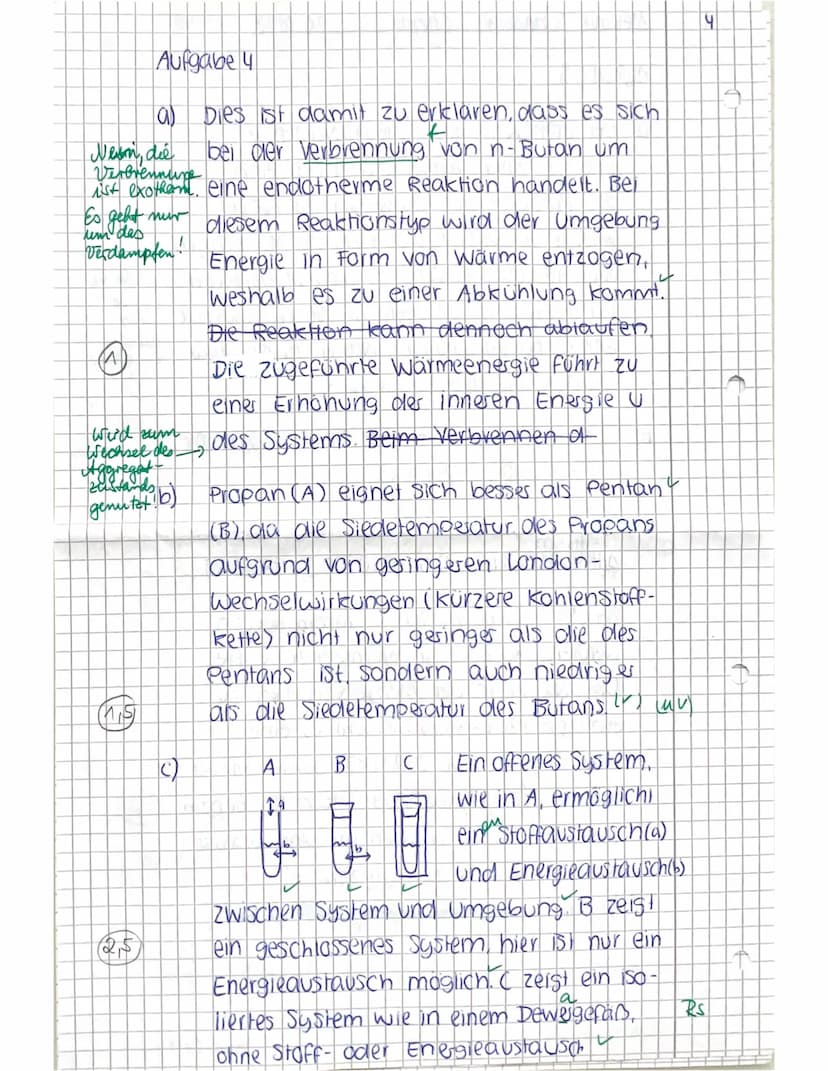 4
Aufgabe 4
a) Dies ist damit zu erklären, dass es sich
bei der Verbrennung von n-Butan um
eine endotherme Reaktion handelt. Bei
diesem Reaktionstyp wird der Umgebung
Energie in Form von Wärme entzogen,
weshalb es zu einer Abkühlung kommt.
Die Reaktion kann dennoch ablaufen
Die zugeführte Wärmeenergie führt zu
einer Erhöhung der inneren Energie U
des Systems. Beim Verbrennen d
Nein, die
Verbrennung
ist exotherm.
Es geht nur
um das
Verdampfen!
f
1
wird zum
Wechsel des
Aggregat-
zustands
genutzt!
b) Propan (A) eignet sich besser als Pentan
(B), da die Siedetemperatur des Propans
aufgrund von geringeren London-
Wechselwirkungen (kürzere Kohlenstoff-
kette) nicht nur geringer als die des
Pentans ist, sondern auch niedriger
als die Siedetemperatur des Butans.
1,5
c) A B C Ein offenes System,
wie in A, ermöglicht
ein en Stoffaustausch (a)
und Energieaustausch (b)
a
b
b
zwischen System und Umgebung. B zeigt
ein geschlossenes System, hier ist nur ein
Energieaustausch möglich. C zeigt ein iso-
liertes System wie in einem Dewargefäß,
a
Rs
ohne Stoff- oder Energieaustausch
2,5